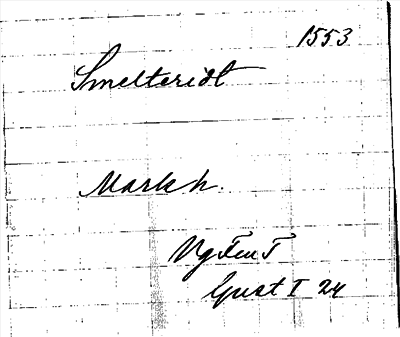 1553
Smelteridt
Markh.
Vg Fen T
Gust I 24